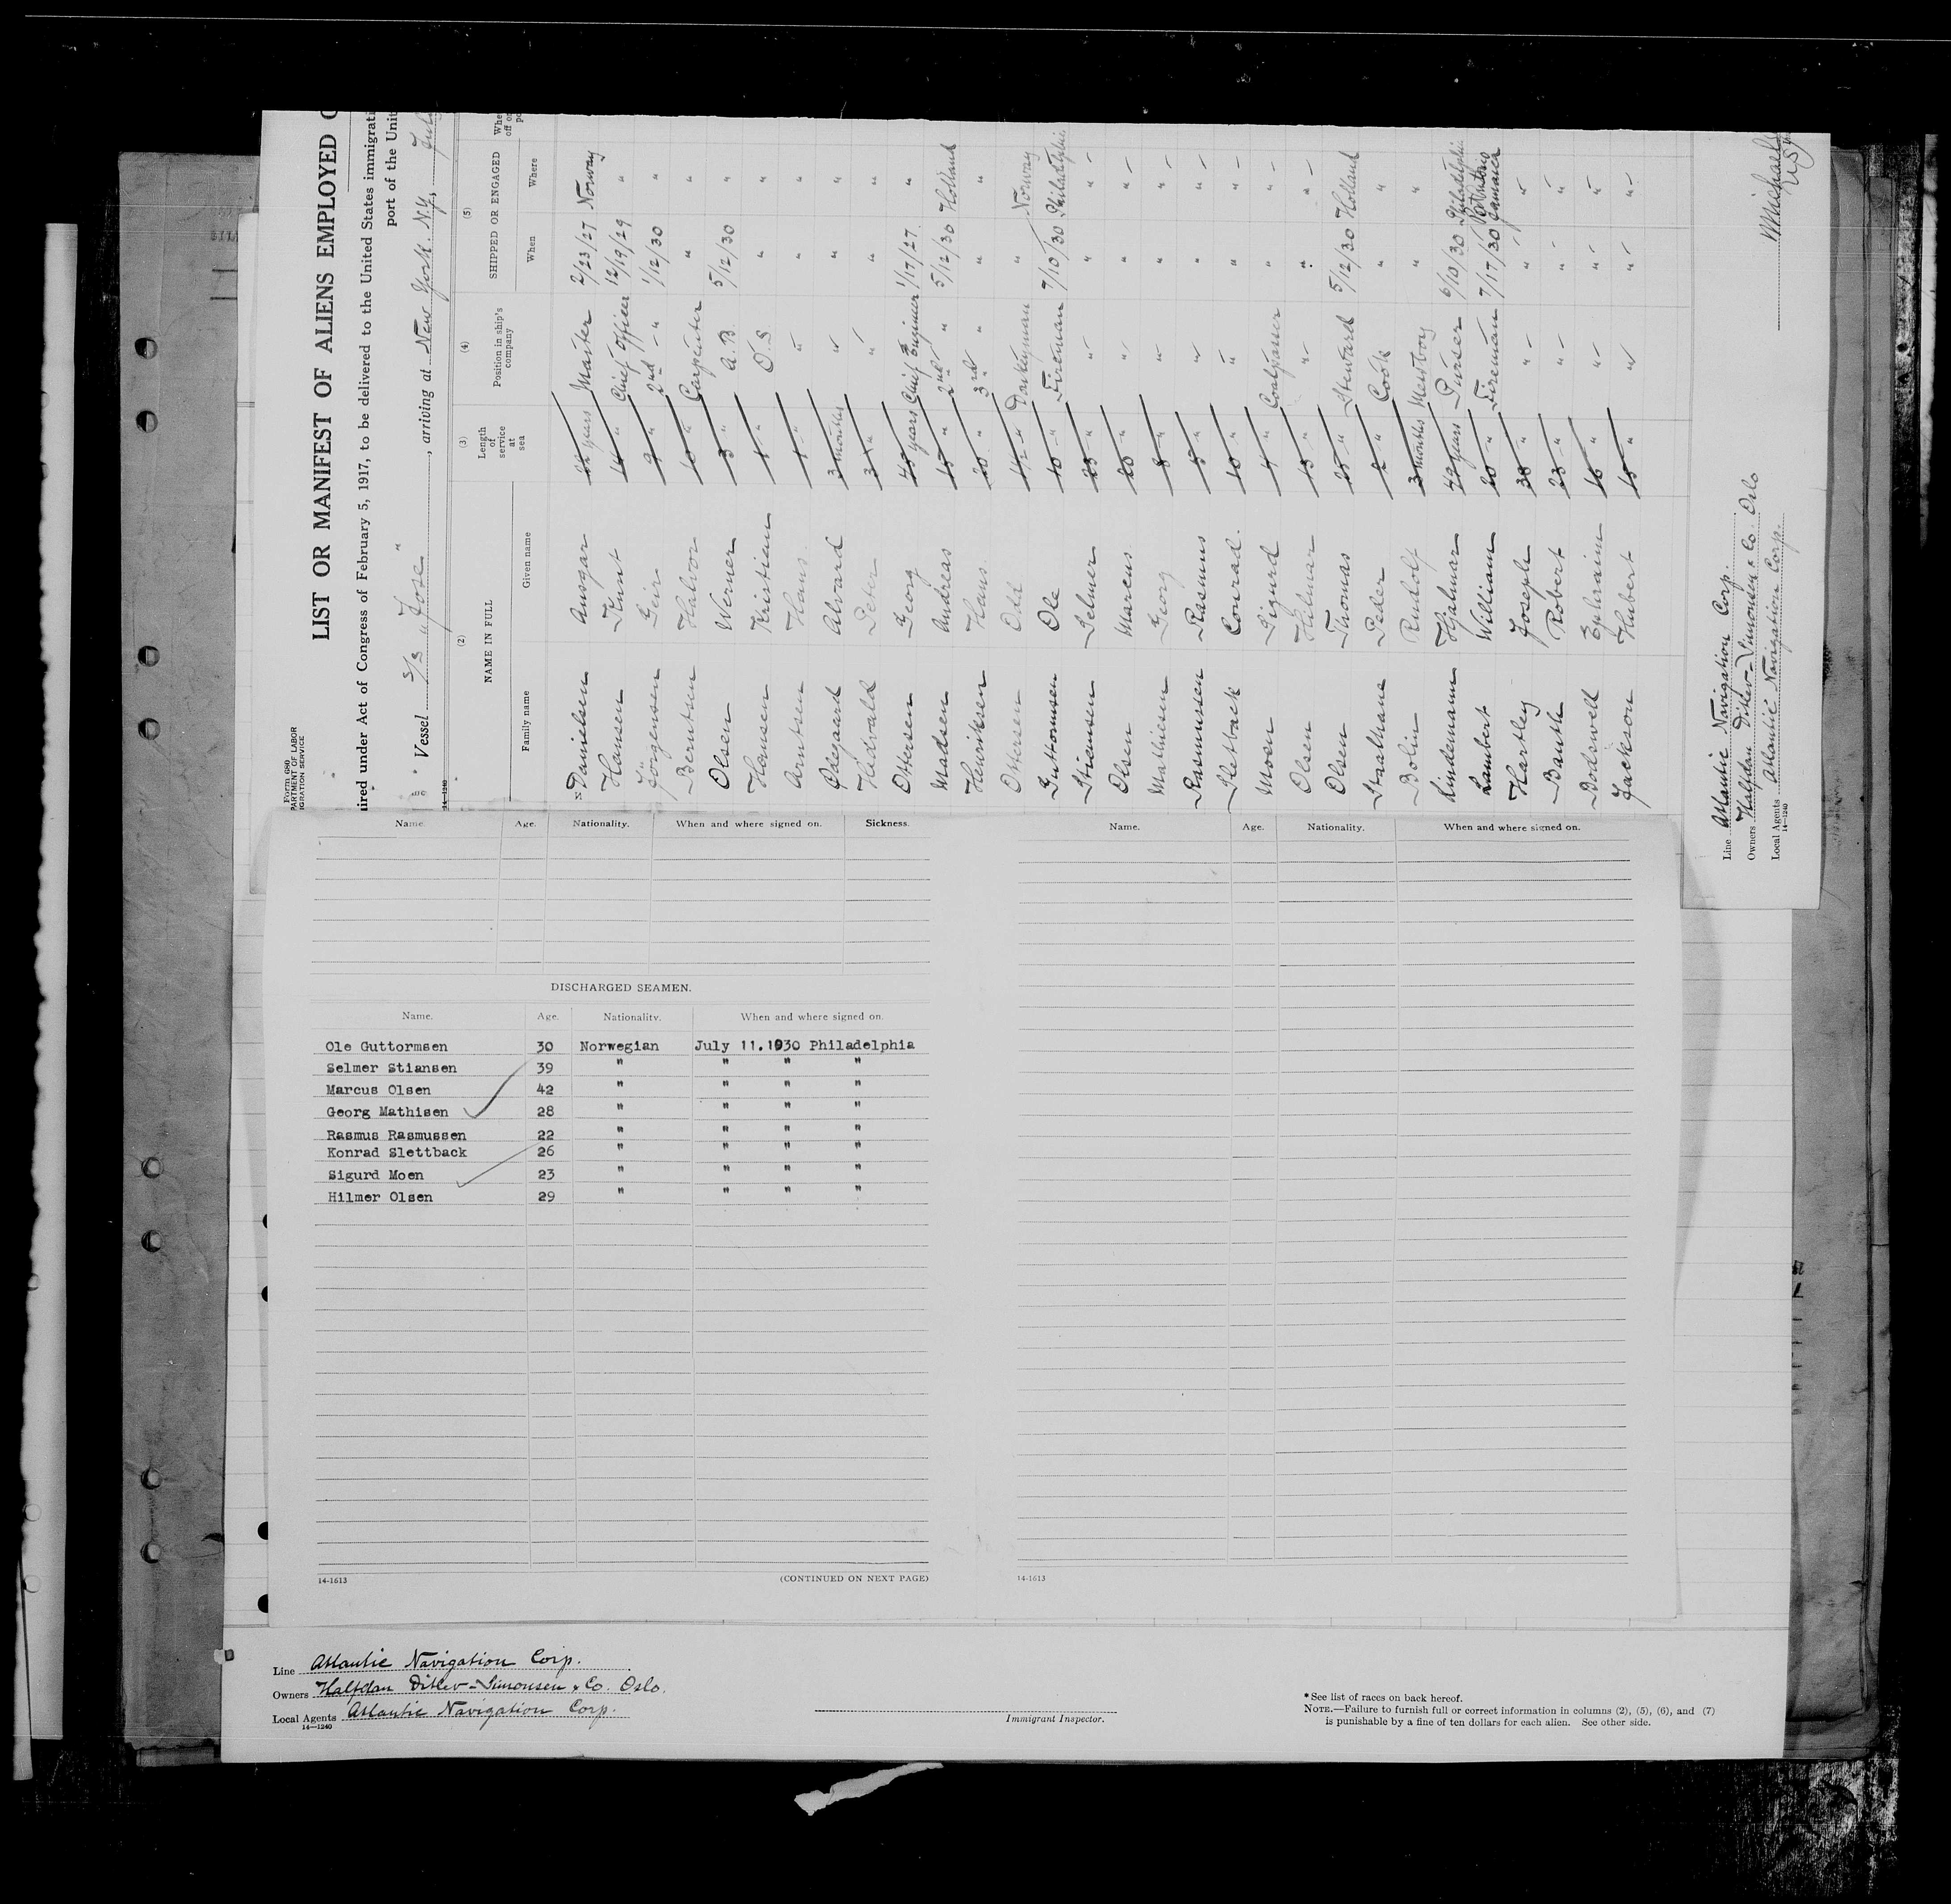 Form 680
LIST OR MANIFEST OF ALIENS EMPLOYED O
uired under Act of Congress of February 5, 1917, to be delivered to the United States immigrati
port of the Unit
Vessel S/S "Jose", arriving at New York. N.Y., July
(2) (3) (4) (5)
NAME IN FULL Length of service at sea Position in ship's company SHIPPED OR ENGAGED
Family name Given name When Where
Danielsen Ansgar years Master 2/23/27 Norway
Hansen Knut " Chief Officer 12/19/29 "
Jörgensen Geir 9 " 2nd " 1/12/30 "
Berntsen Halvor 10 " Carpenter " "
Olsen Werner 3 " A.B. 5/12/30 "
Hansen Kristian 1 " O.S. " "
Arntsen Hans 1 " " " "
Ølegaard Alvard 3 months " " "
Hedvald Peter 3 " " " "
Ottersen Georg 45 years Chief Engineer 1/17/27 "
Madsen Andreas 15 " 2nd " 5/12/30 Holland
Henriksen Hans 20 " 3rd " " "
Ottersen Odd " Donkeyman " Norway
Guttormsen Ole 10 " Fireman 7/10/30 Philadelphia
Stiansen Selmer 23 " " " "
Olsen Marcus 20 " " " "
Mathisen Georg 8 " " " "
Rasmussen Rasmus 5 " " " "
Slettback Conrad 10 " " " "
Moen Sigurd 4 " Coalpasser " "
Olsen Hilmar 13 " " " "
Olsen Thomas 25 " Steward 5/12/30 Holland
Staalhane Peder 2 " Cook " "
Bolin Rudolf 3 months Messboy " "
Lindemann Hjalmar 42 years Purser 6/10/30 Philadelphia
Lambert William 20 " Fireman 7/17/30 Jamaica
Hartley Joseph 38 " " " "
Bauth Robert 23 " " " "
Bodswell Ephraim 16 " " " "
Jackson Hubert 15 " " " "
Line Atlantic Navigation Corp.
Owners Halfdan Ditlev-Simonsen & Co. Oslo
Local Agents Atlantic Navigation Corp.
14—1240
Name. Age. Nationality. When and where signed on. Sickness.
DISCHARGED SEAMEN.
Name. Age. Nationality. When and where signed on.
Ole Guttormsen 30 Norwegian July 11.1930 Philadelphia
Selmer Stiansen 39 " " " "
Marcus Olsen 42 " " " "
Georg Mathisen 28 " " " "
Rasmus Rasmussen 22 " " " "
Konrad Slettback 26 " " " "
Sigurd Moen 23 " " " "
Hilmer Olsen 29 " " " "
14-1613 (CONTINUED ON NEXT PAGE)
Name. Age. Nationality. When and where signed on.
14-1613
Line Atlantic Navigation Corp.
Owners Halfdan Ditlev-Simonsen & Co. Oslo.
Local Agents Atlantic Navigation Corp.
14—1240
Immigrant Inspector.
*See list of races on back hereof.
NOTE.—Failure to furnish full or correct information in columns (2), (5), (6), and (7)
is punishable by a fine of ten dollars for each alien. See other side.